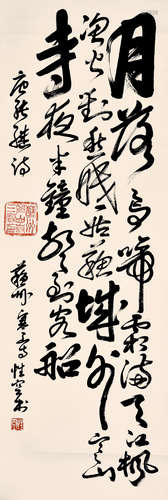 月落乌啼霜满天江枫
渔火对愁眠姑苏城外寒山
寺夜半钟声到客船
唐张继诗
苏州寒山寺性空书